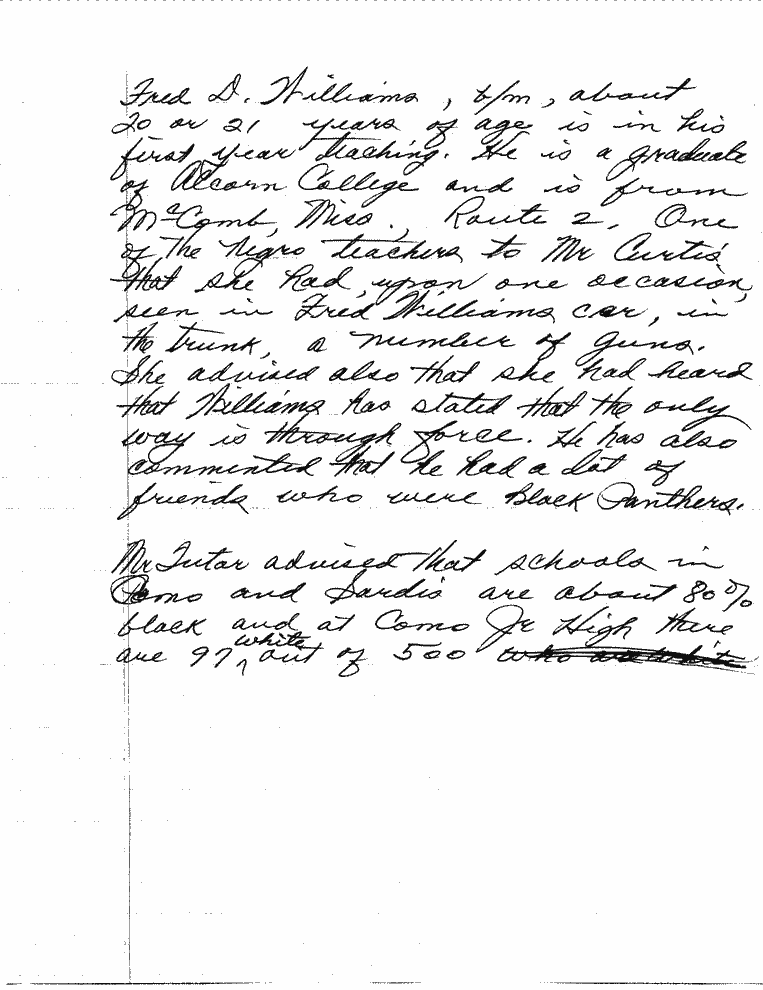 Fred D. Williams, b/m, about
20 or 21 years of age is in his
first year teaching. He is a graduate
of Alcorn College and is from
McComb, Miss., Route 2. One
of the Negro teachers to Mr Curtis
that she had, upon one occasion,
seen in Fred Williams car, in
the trunk, a number of guns.
She advised also that she had heard
that Williams has stated that the only
way is through force. He has also
commented that he had a lot of
friends who were Black Panthers.
Mr Tutar advised that schools in
Como and Sardis are about 80%
black and at Como Jr High there
are 97 white out of 500 who are white